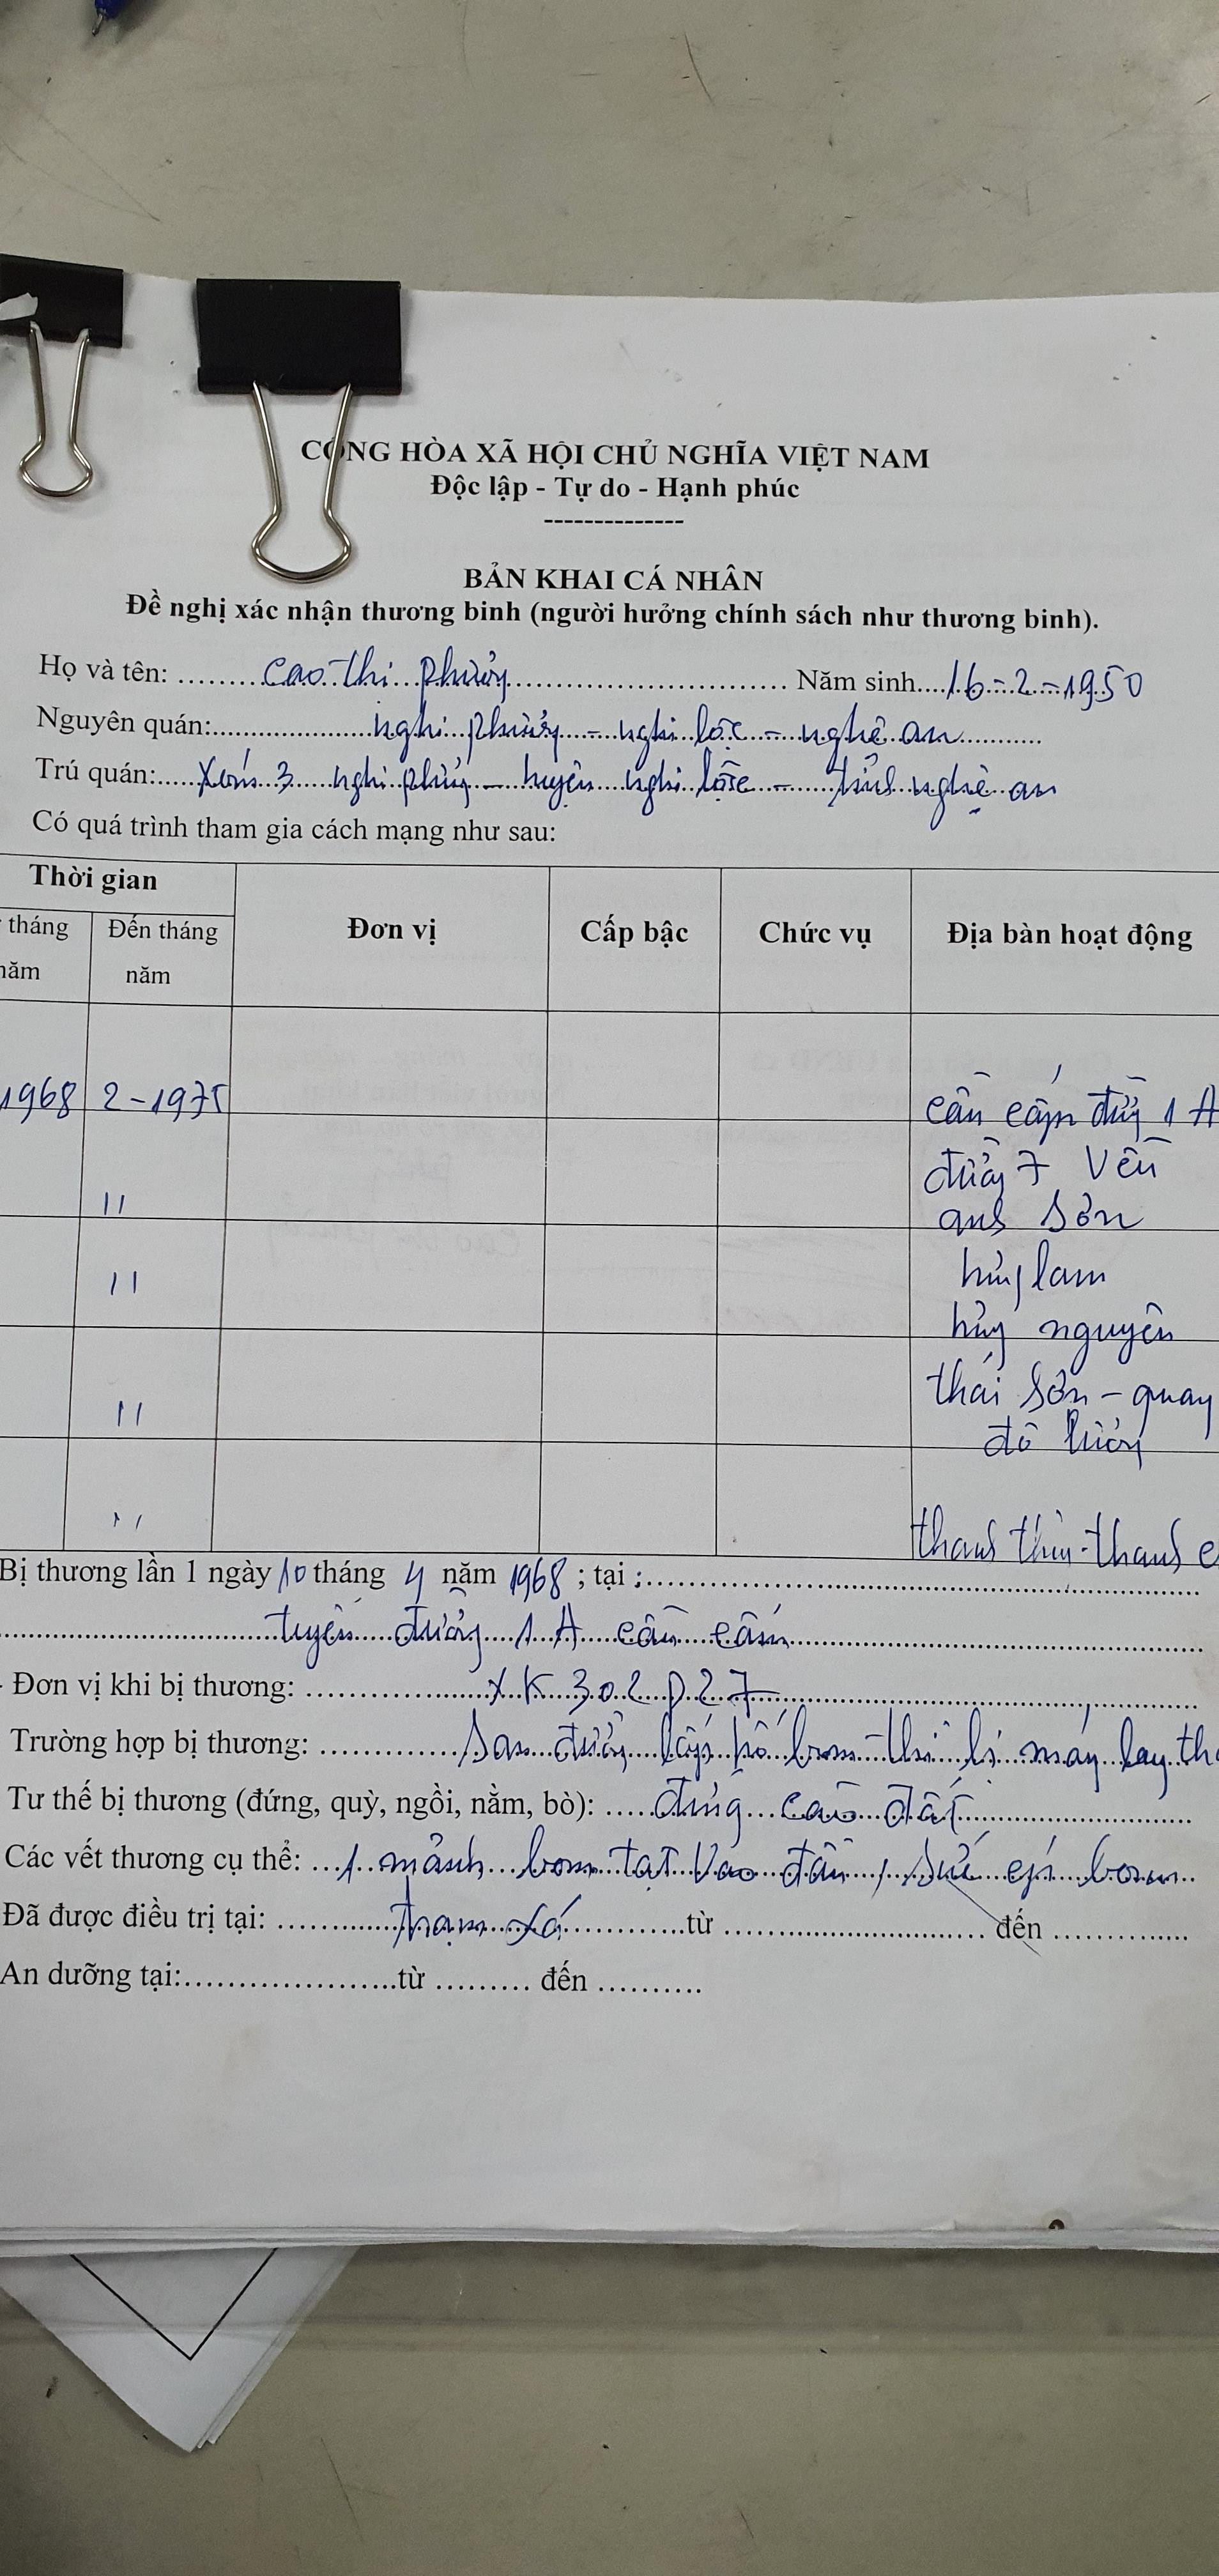 CỘNG HÒA XÃ HỘI CHỦ NGHĨA VIỆT NAM
Độc lập - Tự do - Hạnh phúc
--------------
BẢN KHAI CÁ NHÂN
Đề nghị xác nhận thương binh (người hưởng chính sách như thương binh).
Họ và tên: Cao Thị Phương Năm sinh 16-2-1950
Nguyên quán: nghi phương - nghi lộc - nghệ an
Trú quán: Xóm 3 nghi phương - huyện nghi lộc - tỉnh nghệ an
Có quá trình tham gia cách mạng như sau:
Thời gian
tháng năm Đến tháng năm Đơn vị Cấp bậc Chức vụ Địa bàn hoạt động
1968 2-1975 cầu cấm đường 1A
đường 7 Vền
"
anh Sơn
" hưng lam
hưng nguyên
" thái Sơn - quay
đô lương
" thanh thủy - thanh c
Bị thương lần 1 ngày 10 tháng 4 năm 1968; tại :
tuyến đường 1A cầu cấm
- Đơn vị khi bị thương: XK 302 P27
Trường hợp bị thương: San đường lấp hố bom thì bị máy bay th
Tư thế bị thương (đứng, quỳ, ngồi, nằm, bò): đứng cào đất
Các vết thương cụ thể: 1 mảnh bom tạt vào đầu, sức ép bom
Đã được điều trị tại: Trạm xá từ đến
An dưỡng tại: từ đến